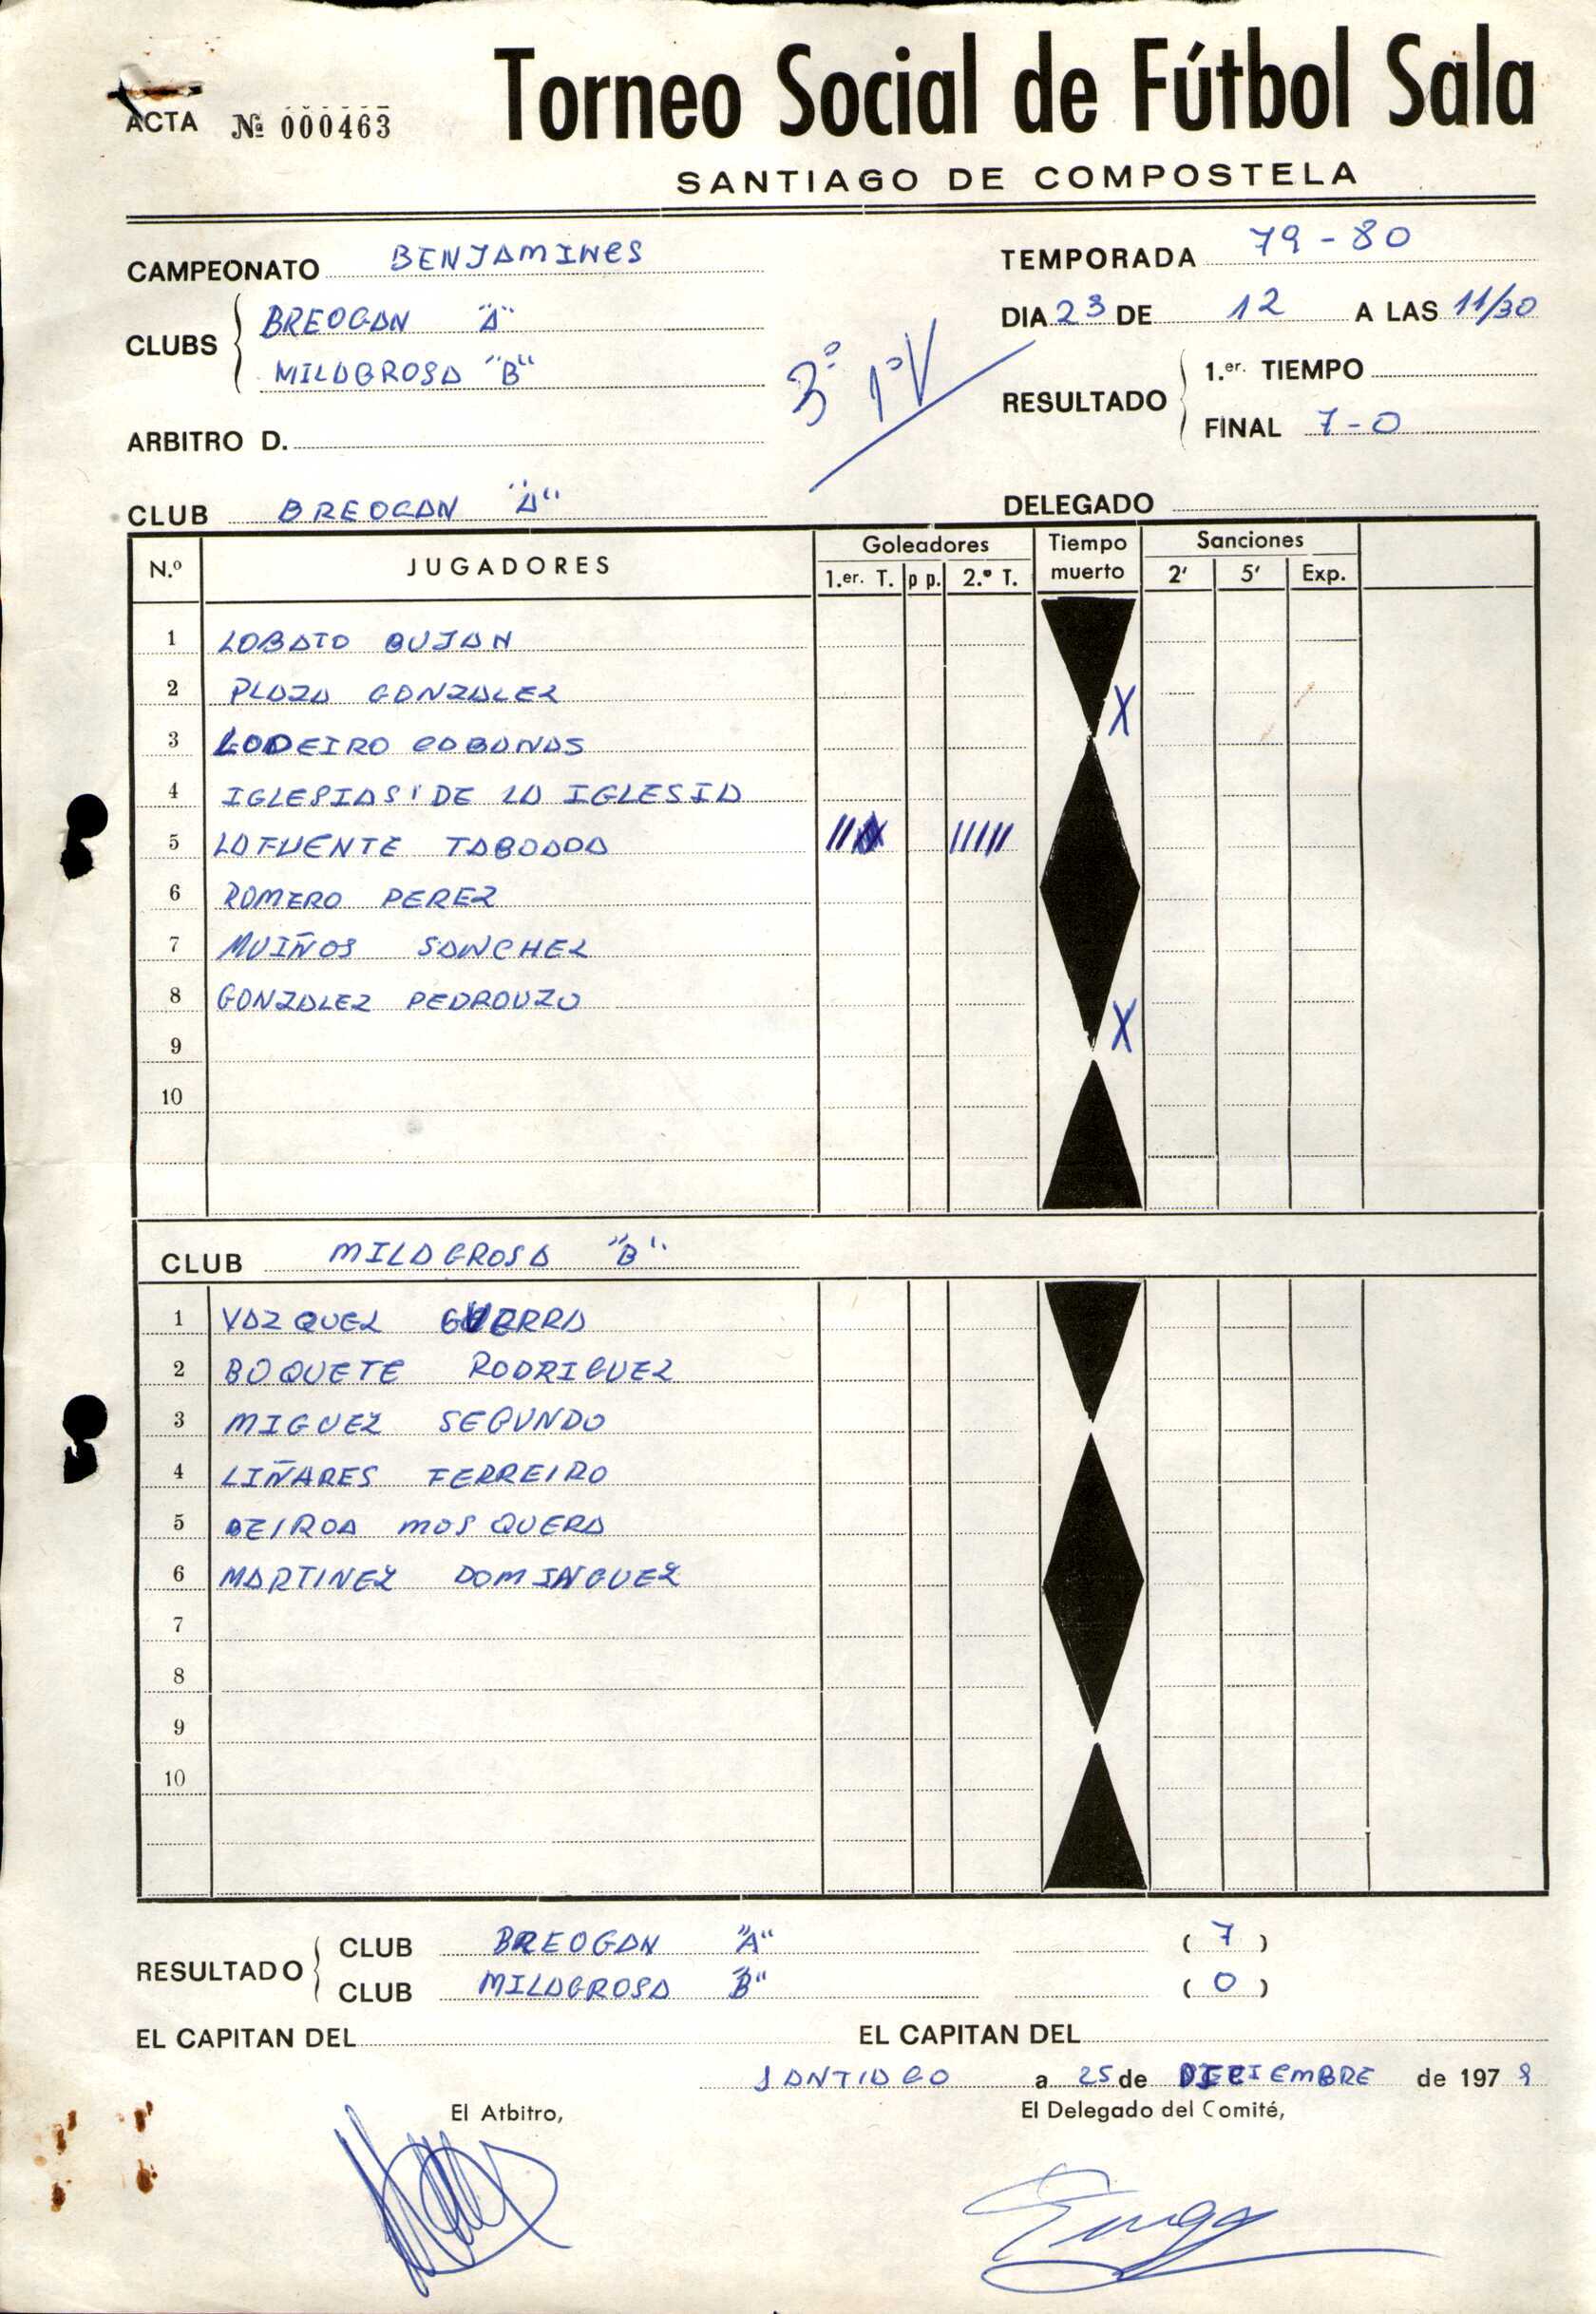 Torneo Social de Fútbol Sala
ACTA Nº 000463
SANTIAGO DE COMPOSTELA
CAMPEONATO BENJAMINES
TEMPORADA 79-80
CLUBS BREOGAN "A"
DIA 23 DE 12 A LAS 11/30
MILAGROSA "B"
3º 1ºV
RESULTADO 1.er. TIEMPO
FINAL 7-0
ARBITRO D.
CLUB BREOGAN "A"
DELEGADO
N.º JUGADORES Goleadores Tiempo muerto Sanciones
1.er. T. p p. 2.º T. 2' 5' Exp.
1 LOBATO BUJAN
2 PLAZA GONZALEZ X
3 LODEIRO COBANAS
4 IGLESIAS DE LA IGLESIA
5 LAFUENTE TABOADA // /////
6 ROMERO PEREZ
7 MUIÑOS SANCHEZ
8 GONZALEZ PEDROUZO X
9
10
CLUB MILAGROSA "B"
1 VAZQUEZ GUERRA
2 BOQUETE RODRIGUEZ
3 MIGUEZ SEGUNDO
4 LIÑARES FERREIRO
5 MOSQUERA
6 MARTINEZ DOMINGUEZ
7
8
9
10
RESULTADO CLUB BREOGAN "A" (7)
CLUB MILAGROSA "B" (0)
EL CAPITAN DEL
EL CAPITAN DEL
SANTIAGO a 25 de DICIEMBRE de 1979
El Atbitro,
El Delegado del Comité,